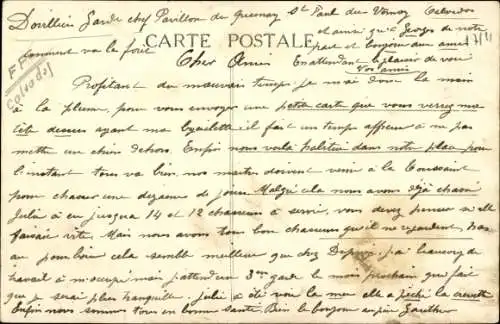 Douillein Garde chez Pavillon du Quesnay St Paul du Vernay Calvados
et ainsi qu'à Georges de notre
part et bonjour aux amis
comment va le four
CARTE POSTALE
17/11
Calvados
Cher Amis En attendant le plaisir de vous
Vos amis
Profitant du mauvais temps je mai donc la main
à la plume, pour vous envoyer une petite carte que vous verrez ma
tête dessus ayant ma byciclette il fait un temps affreux à ne pas
mettre un chien dehors. Enfin nous voilà habitués dans notre place pour
l'instant tous va bien, nos maitres doivent venir à la Toussaint
pour chasser une dizaine de jours Malgré cela nous avons déjà chassé
Julie à eu jusqua 14 et 12 chasseurs à servir, vous devez penser si elle
faisait vite. Mais nous avons tous bon chasseurs qu'il ne regardent pas
au pourboire cela semble meilleur que chez Dupuy j'ai beaucoup de
travail à m'occupé mais j'attends un 3me garde le mois prochain qui fait
que je serai plus tranquille julie a été voir la mer elle a pêché la crevette
Enfin nous sommes tous en bonne santé. Bien le bonjour au père Gauthier